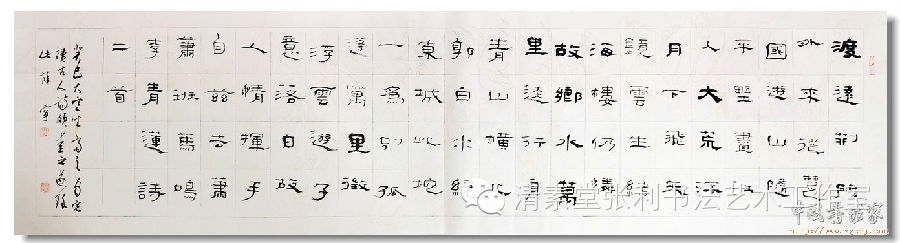 渡遠荆門
外來從楚
國遊山隨
平野盡江
入大荒流
月下飛天
鏡雲生結
海樓仍憐
故鄉水萬
里送行舟
青山橫北
郭白水繞
東城此地
一為別孤
蓬萬里徵
浮雲遊子
意落日故
人情揮手
自茲去蕭
蕭班馬鳴
李青蓮詩
二首
清素堂张利书法艺术工作室